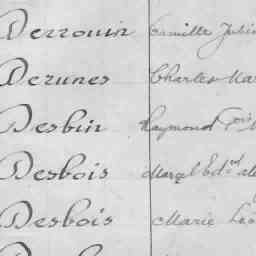 Derrouin Camille Julie
Derunes Charles Ma
Desbin Raymond
Desbois Marcel Edrd
Desbois Marie Lé